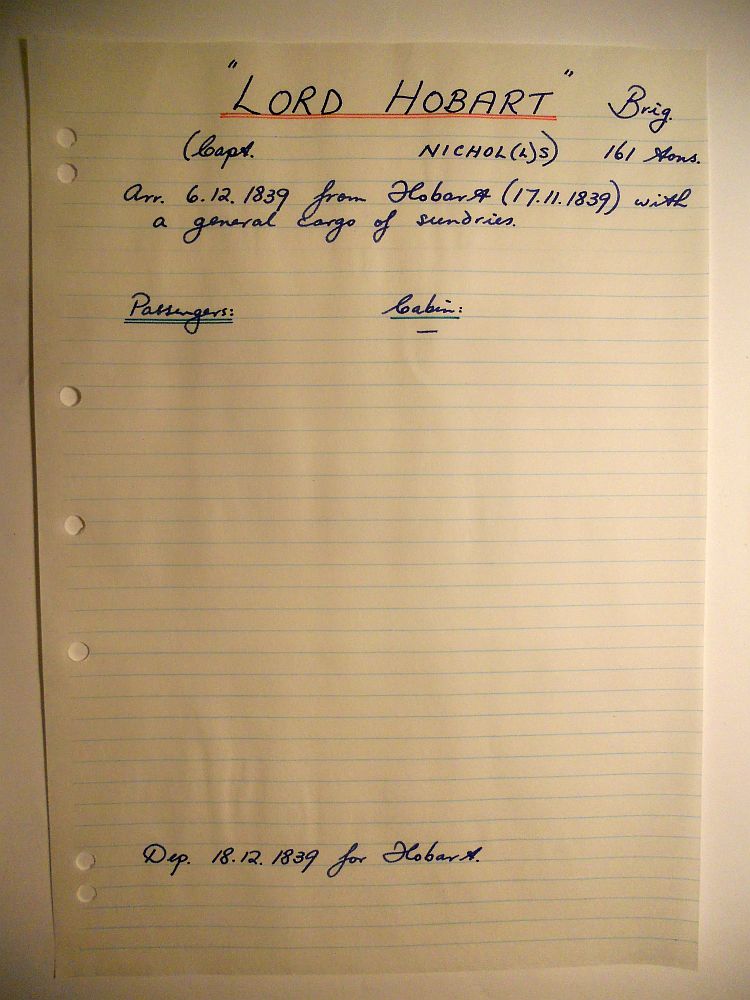 "LORD HOBART" Brig.
(Capt. NICHOL(L)S) 161 tons.
Arr. 6.12.1839 from Hobart (17.11.1839) with
a general cargo of sundries.
Passengers: Cabin:
—
Dep. 18.12.1839 for Hobart.